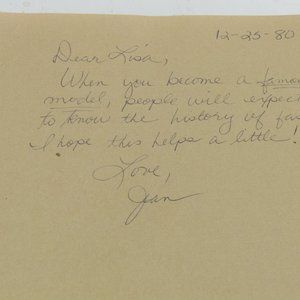 12-25-80
Dear Lisa,
When you become a famo
model, people will expec
to know the history of fas
I hope this helps a little!
Love,
Jean